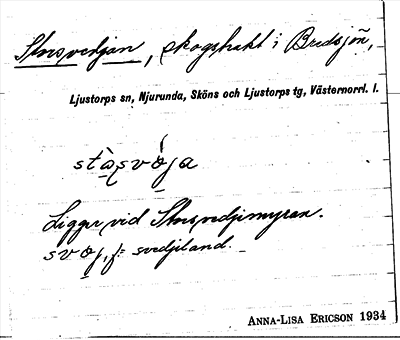 Storsvedjan, skogstrakt i Bredsjön,
Ljustorps sn, Njurunda, Sköns och Ljustorps tg, Västernorrl. l.
Ligger vid Storsvedjemyran.
svedjeland.
ANNA-LISA ERICSON 1934